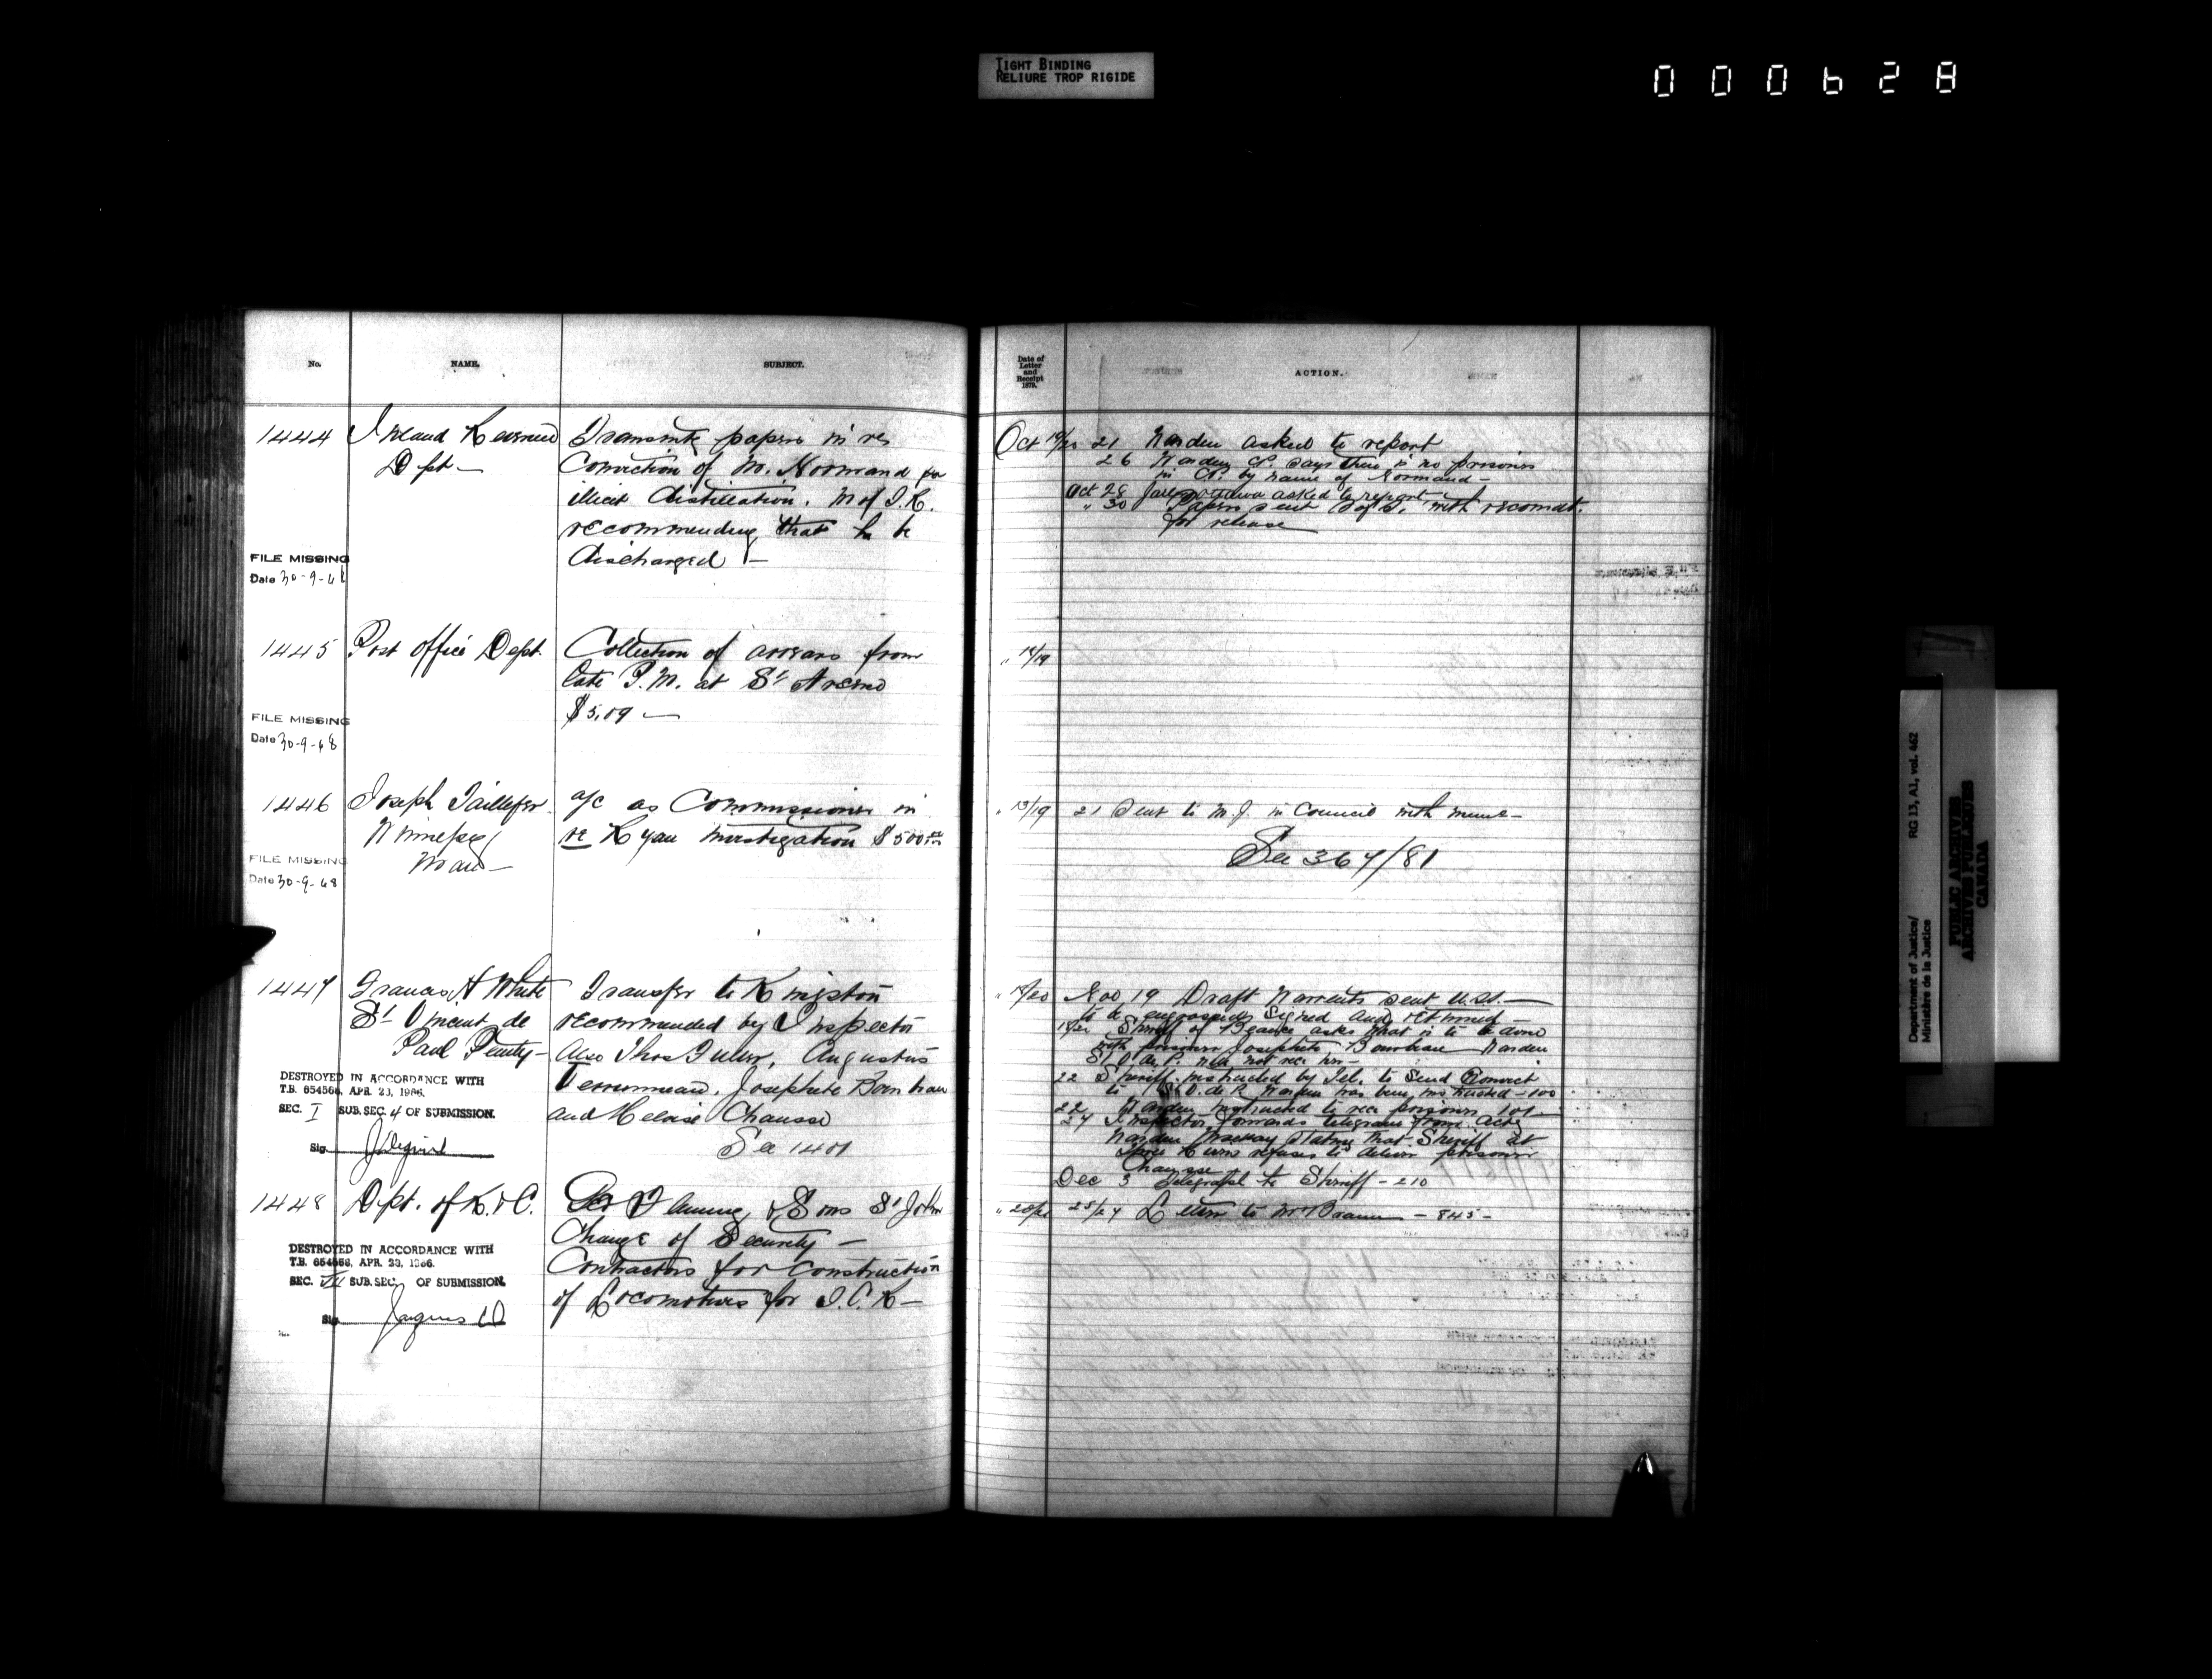 TIGHT BINDING
RELIURE TROP RIGIDE
000628
No.
NAME.
SUBJECT.
1444
Inland Revenue
Dept-
Transmits papers in re
Conviction of M. Normand for
illicit distillation. M of I.R.
recommending that he be
discharged -
FILE MISSING
Date 30-9-68
1445
Post Office Dept.
Collection of arrears from
late P.M. at St Arsene
$5.09 -
FILE MISSING
Date 30-9-68
1446
Joseph Taillefer
Winnipeg
Man-
a/c as Commissioner in
re Ryan investigation $500
FILE MISSING
Date 30-9-68
1447
Francis H White
St Vincent de
Paul Penty-
Transfer to Kingston
recommended by Inspector
Also Thos Fuller, Augustus
Josephete Bourbeau
and Heloise Chausse
See 1401
DESTROYED IN ACCORDANCE WITH
T.B. 654566, APR. 23, 1966.
SEC. I SUB. SEC. 4 OF SUBMISSION.
Sig
1448
Dpt. of R. & C.
Fleming & Sons St John
Change of Security -
Contractors for Construction
of Locomotives for I.C.R-
DESTROYED IN ACCORDANCE WITH
T.B. 654566, APR. 23, 1966.
SEC. VII SUB. SEC. OF SUBMISSION.
Sig
Date of
Letter
and
Receipt
1879.
ACTION.
Oct 19/20 21 Warden asked to report
26 Warden says there is no prisoner
in by name of Normand -
Oct 28 Ottawa asked to report
" 30 Papers sent S of S. with recomdt.
for release
"
" 13/19 21 Sent to M.J. in Council with memo-
See 367/81
" 18/20 Nov 19 Draft Warrants sent U.S.S. -
to be engrossed, signed and returned -
Sheriff of Beauce asks what is to be done
with prisoner Josephete Bourbeau Warden
St V. de P. will not rec. her -
22 Sheriff instructed by Tel. to send Convict
to St V. de P. Warden has been instructed - 100
22 Warden instructed to rec. prisoner 101 -
27 Inspector forwards telegram from actg
Warden stating that Sheriff at
Three Rivers refuses to deliver prisoner
Chausse
Dec 3 Telegraph to Sheriff - 210
" 20/21 25/27 Letter to Mr Braun - 845 -
Department of Justice/
Ministère de la Justice
RG 13, A1, vol. 462
PUBLIC ARCHIVES
ARCHIVES PUBLIQUES
CANADA